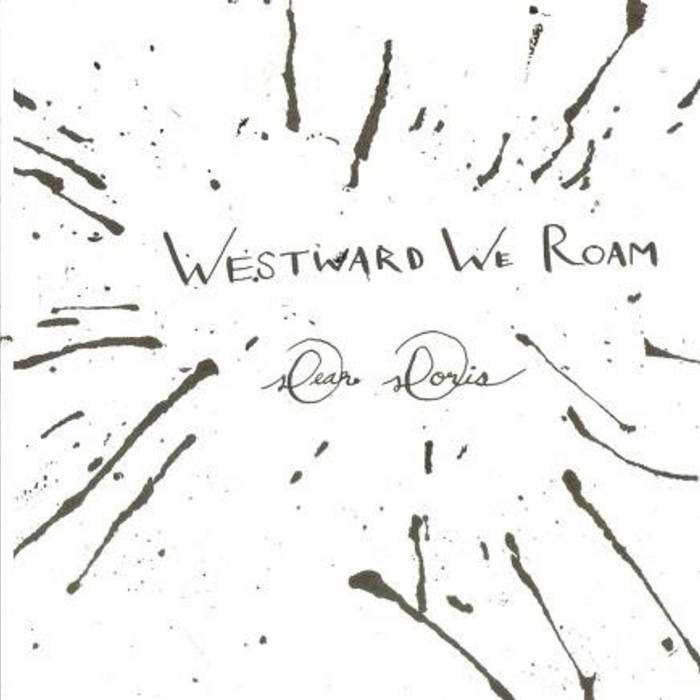 WESTWARD WE ROAM
Dear Doris